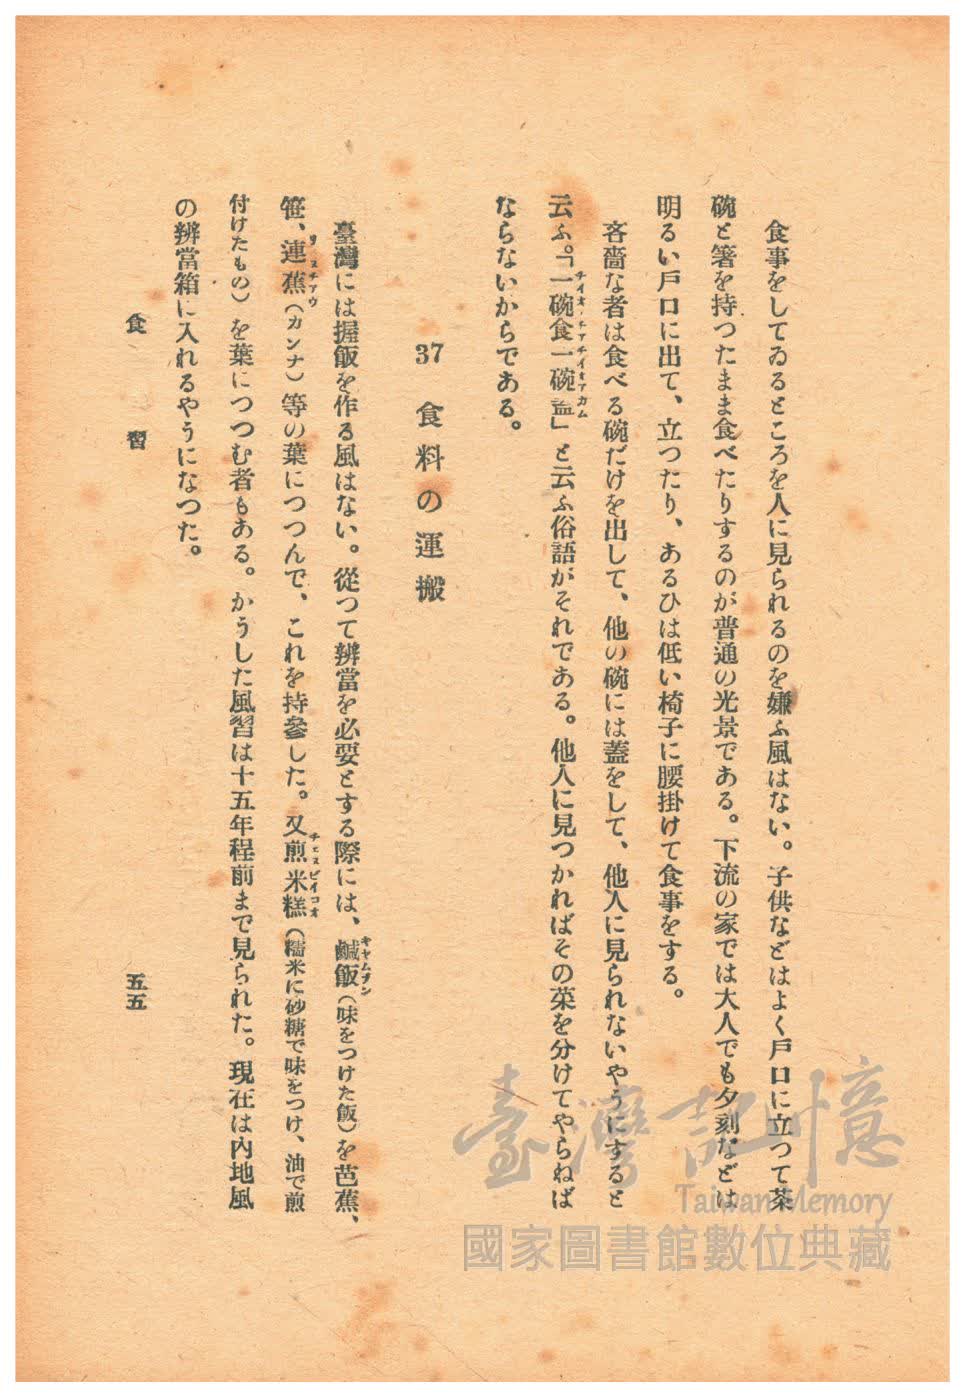 食事をしてゐるところを人に見られるのを嫌ふ風はない。子供などはよく戸口に立つて茶
碗と箸を持つたまま食べたりするのが普通の光景である。下流の家では大人でも夕刻などは
明るい戸口に出て、立つたり、あるひは低い椅子に腰掛けて食事をする。
吝嗇な者は食べる碗だけを出して、他の碗には蓋をして、他人に見られないやうにすると
云ふ。「一碗食一碗」と云ふ俗語がそれである。他人に見つかればその菜を分けてやらねば
ならないからである。
37 食料の運搬
臺灣には握飯を作る風はない。從つて辨當を必要とする際には、鹹飯（味をつけた飯）を芭蕉、
笹、連蕉（カンナ）等の葉につつんで、これを持參した。又煎米糕（糯米に砂糖で味をつけ、油で煎
付けたもの）を葉につつむ者もある。かうした風習は十五年程前まで見られた。現在は内地風
の辨當箱に入れるやうになつた。
食習
五五
臺灣記憶
Taiwan Memory
國家圖書館數位典藏